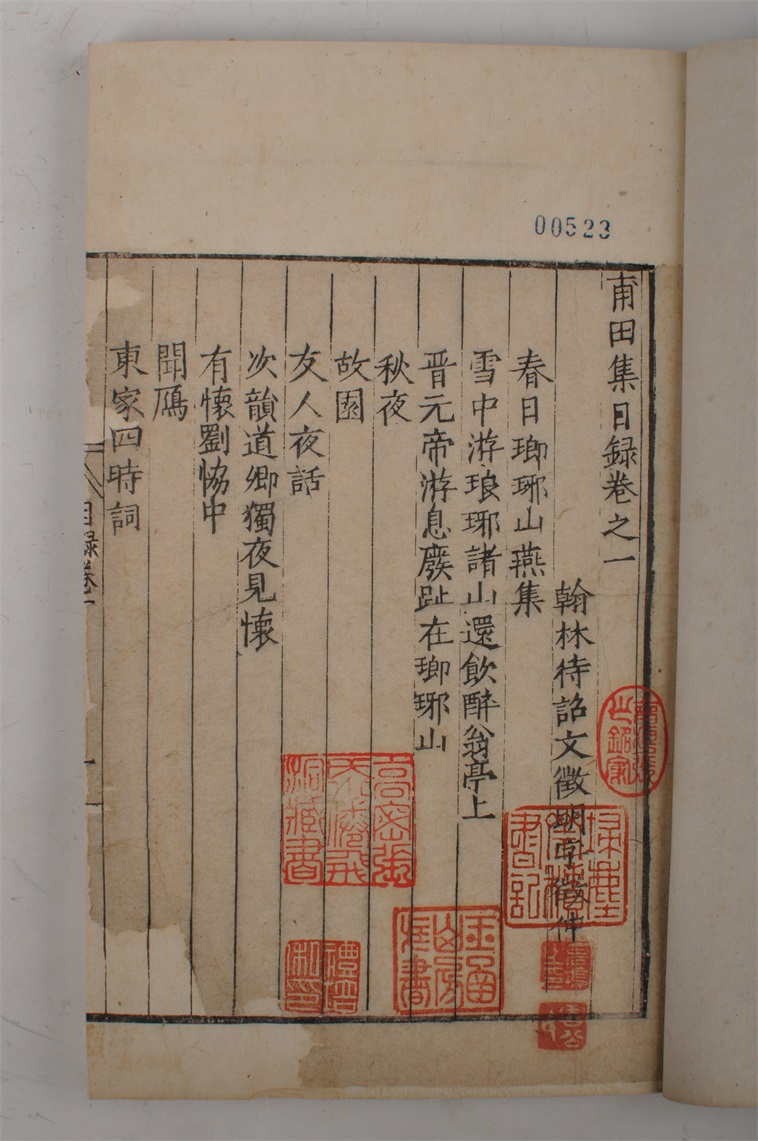 00523
甫田集目録卷之一
翰林待詔文徵明字徵仲
春日瑯琊山燕集
雪中游琅琊諸山還飲醉翁亭上
晋元帝游息廢趾在瑯琊山
秋夜
故園
友人夜話
次韻道卿獨夜見懷
有懷劉恊中
聞鴈
東家四時詞
目録卷一